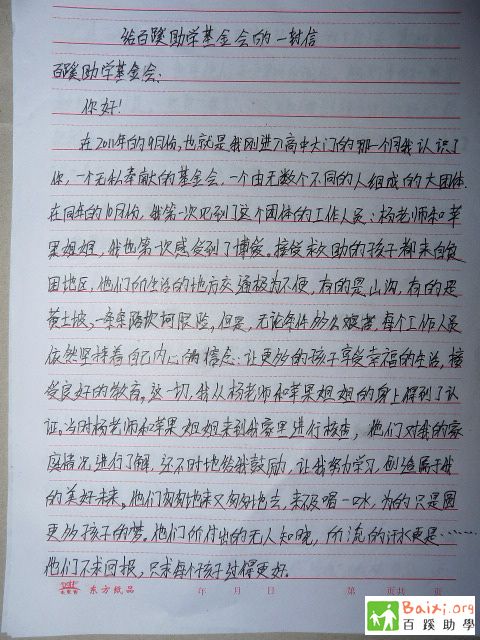 给百蹊助学基金会的一封信
百蹊助学基金会:
你好!
在2011年的9月份,也就是我刚进入高中大门的那一个月我认识了
你,一个无私奉献的基金会,一个由无数个不同的人组成的大团体.
在同年的10月份,我第一次见到了这个团体的工作人员:杨老师和苹
果姐姐,我也第一次感受到了博爱。接受求助的孩子都来自贫
困地区,他们所生活的地方交通极为不便,有的是山沟,有的是
黄土坡,一条条路坎坷陡险,但是,无论条件多么艰苦,每个工作人员
依然坚持着自己内心的信念:让更多的孩子享受幸福的生活,接
受良好的教育。这一切,我从杨老师和苹果姐姐的身上得到了认
证。当时杨老师和苹果姐姐来到我家里进行核查,他们对我的家
庭情况进行了解,还不时地给我鼓励,让我努力学习,创造属于我
的美好未来。他们匆匆地来又匆匆地去,来不及喝一口水,为的只是圆
更多孩子的梦。他们所付出的无人知晓,所流的汗水更是……
他们不求回报,只求每个孩子过得更好。
东方纸品 年 月 日 第 页共 页
Baixi.org
百蹊助學